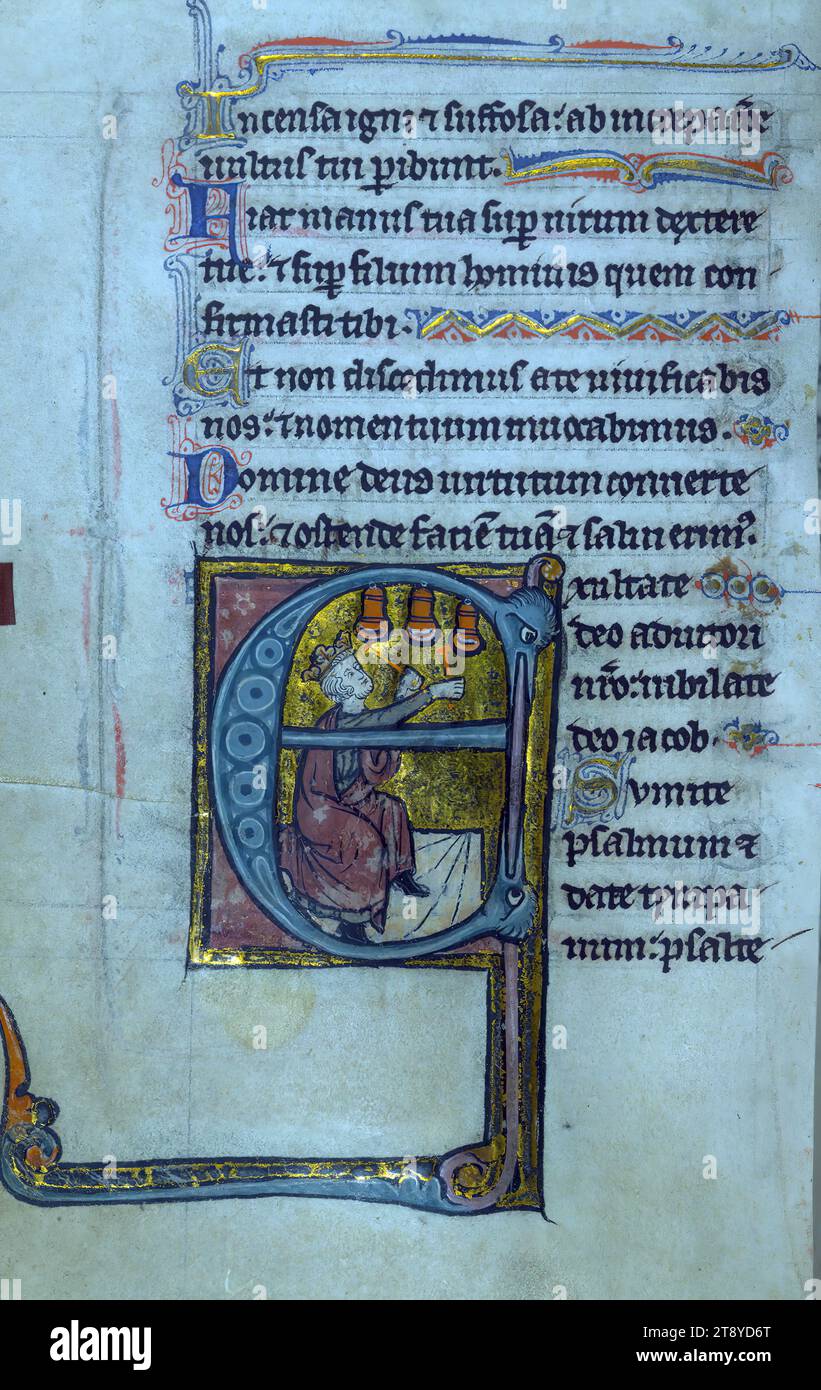 Incensa igni ⁊ suffosa: ab increpac̄e
uultus tui ꝑibunt.
Fiat manus tua suꝑ uirum dextere
tue: ⁊ suꝑ filium hominis quem con-
firmasti tibi.
Et non discedimus a te uiuificabis
nos: ⁊ nomen tuum inuocabimus.
Domine deus uirtutum conuerte
nos: ⁊ ostende faciē tuā ⁊ salui erim⁹.
Exultate
deo adiutori
nr̄o: iubilate
deo iacob.
Sumite
psalmum ⁊
date tympa-
num: psalte-
alamy
Image ID: 2T8YD6T
www.alamy.com